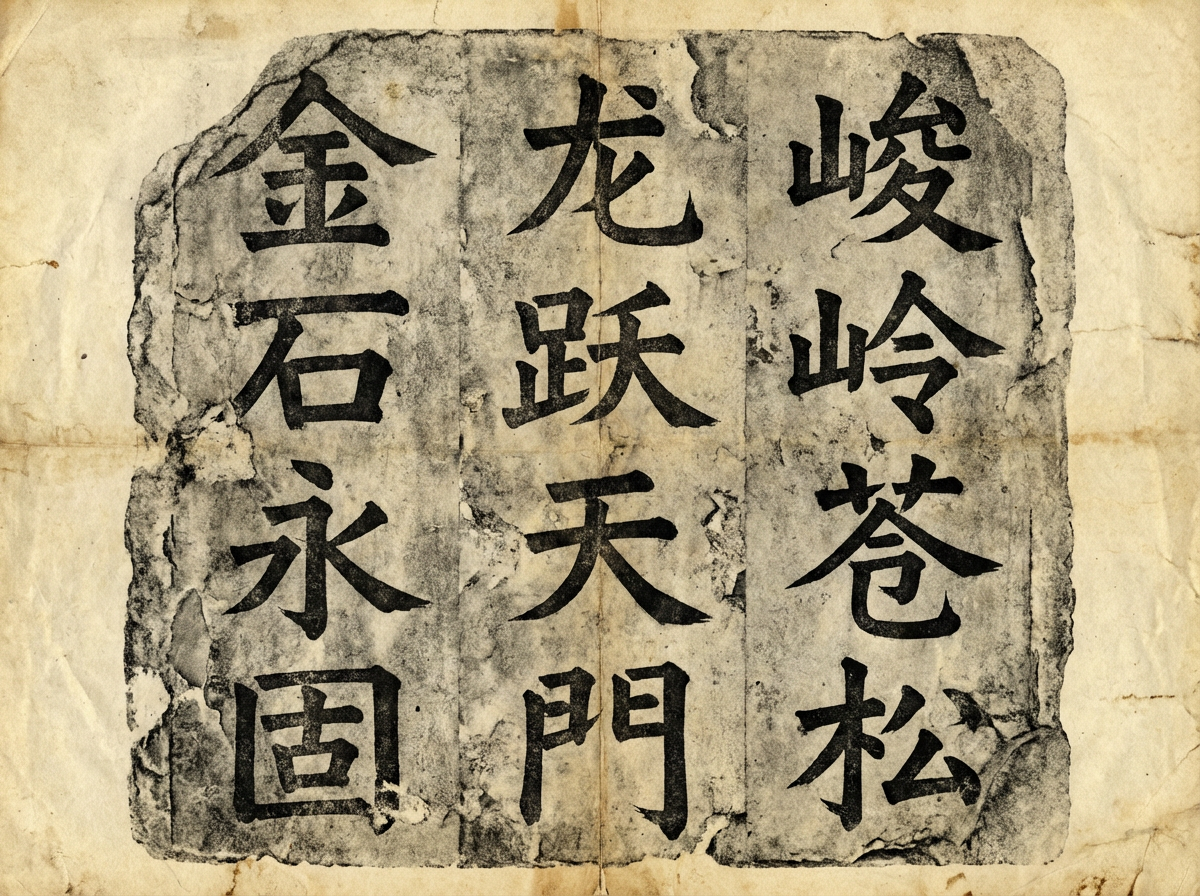 峻岭苍松
龙跃天門
金石永固